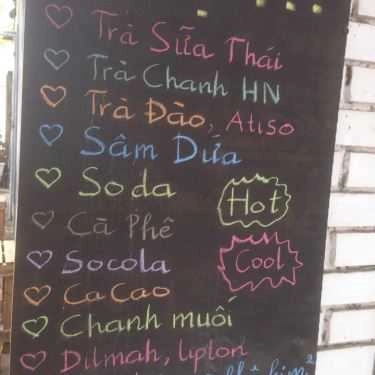 Trà Sữa Thái
Trà Chanh HN
Trà Đào, Atiso
Sâm Dứa
Soda
Hot
Cà Phê
Socola
Cool
Ca Cao
Chanh muối
Dilmah, lipton